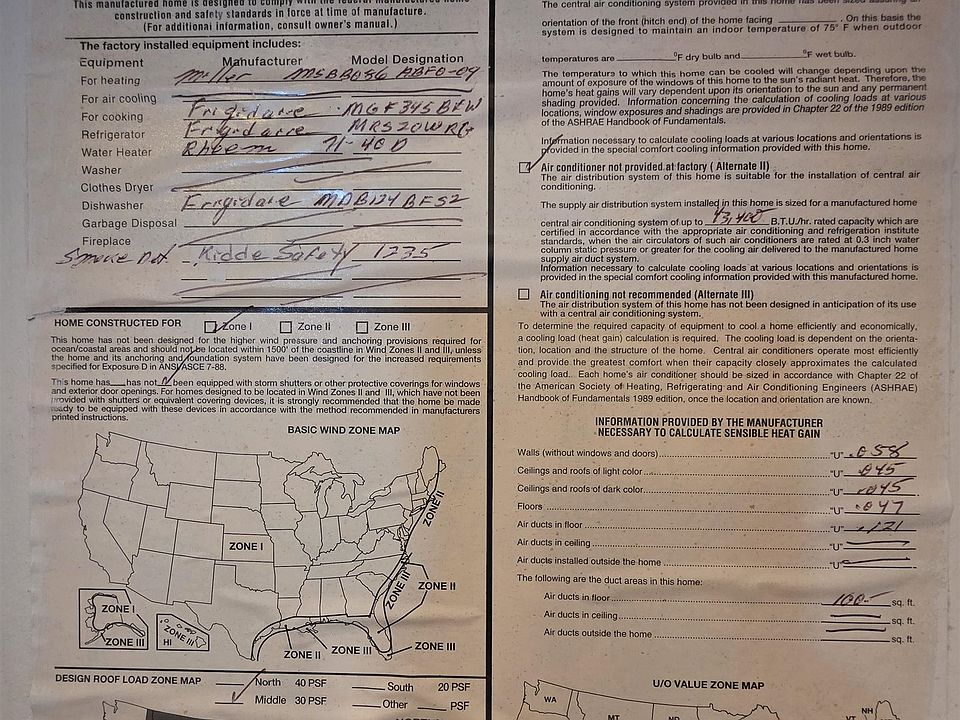 This manufactured home is designed to comply with the federal manufactured home
construction and safety standards in force at time of manufacture.
(For additional information, consult owner's manual.)
The factory installed equipment includes:
Equipment Manufacturer Model Designation
For heating Miller
For air cooling
For cooking Frigidaire
Refrigerator Frigidaire
Water Heater Rheem
Washer
Clothes Dryer
Dishwasher Frigidaire
Garbage Disposal
Fireplace
Smoke Det Kidde Safety 1235
HOME CONSTRUCTED FOR Zone I Zone II Zone III
This home has not been designed for the higher wind pressure and anchoring provisions required for
ocean/coastal areas and should not be located within 1500' of the coastline in Wind Zones II and III, unless
the home and its anchoring and foundation system have been designed for the increased requirements
specified for Exposure D in ANSI/ASCE 7-88.
This home has has not been equipped with storm shutters or other protective coverings for windows
and exterior door openings. For homes designed to be located in Wind Zones II and III, which have not been
provided with shutters or equivalent covering devices, it is strongly recommended that the home be made
ready to be equipped with these devices in accordance with the method recommended in manufacturers
printed instructions.
BASIC WIND ZONE MAP
ZONE I
ZONE II
ZONE III
ZONE II
ZONE I
ZONE III
ZONE III
HI
ZONE II
ZONE III
ZONE III
DESIGN ROOF LOAD ZONE MAP North 40 PSF South 20 PSF
Middle 30 PSF Other PSF
The central air conditioning system provided in this home has been sized assuming an
orientation of the front (hitch end) of the home facing . On this basis the
system is designed to maintain an indoor temperature of 75° F when outdoor
temperatures are °F dry bulb and °F wet bulb.
The temperature to which this home can be cooled will change depending upon the
amount of exposure of the windows of this home to the sun's radiant heat. Therefore, the
home's heat gains will vary dependent upon its orientation to the sun and any permanent
shading provided. Information concerning the calculation of cooling loads at various
locations, window exposures and shadings are provided in Chapter 22 of the 1989 edition
of the ASHRAE Handbook of Fundamentals.
Information necessary to calculate cooling loads at various locations and orientations is
provided in the special comfort cooling information provided with this home.
Air conditioner not provided at factory ( Alternate II)
The air distribution system of this home is suitable for the installation of central air
conditioning.
The supply air distribution system installed in this home is sized for a manufactured home
central air conditioning system of up to 43,400 B.T.U./hr. rated capacity which are
certified in accordance with the appropriate air conditioning and refrigeration institute
standards, when the air circulators of such air conditioners are rated at 0.3 inch water
column static pressure or greater for the cooling air delivered to the manufactured home
supply air duct system.
Information necessary to calculate cooling loads at various locations and orientations is
provided in the special comfort cooling information provided with this manufactured home.
Air conditioning not recommended (Alternate III)
The air distribution system of this home has not been designed in anticipation of its use
with a central air conditioning system.
To determine the required capacity of equipment to cool a home efficiently and economically,
a cooling load (heat gain) calculation is required. The cooling load is dependent on the orienta-
tion, location and the structure of the home. Central air conditioners operate most efficiently
and provide the greatest comfort when their capacity closely approximates the calculated
cooling load. Each home's air conditioner should be sized in accordance with Chapter 22 of
the American Society of Heating, Refrigerating and Air Conditioning Engineers (ASHRAE)
Handbook of Fundamentals 1989 edition, once the location and orientation are known.
INFORMATION PROVIDED BY THE MANUFACTURER
NECESSARY TO CALCULATE SENSIBLE HEAT GAIN
Walls (without windows and doors) "U" .058
Ceilings and roofs of light color "U" .045
Ceilings and roofs of dark color "U" .045
Floors "U" .047
Air ducts in floor "U" .121
Air ducts in ceiling "U"
Air ducts installed outside the home "U"
The following are the duct areas in this home:
Air ducts in floor 100 sq. ft.
Air ducts in ceiling sq. ft.
Air ducts outside the home sq. ft.
U/O VALUE ZONE MAP
WA
MT
ND
VT
NH